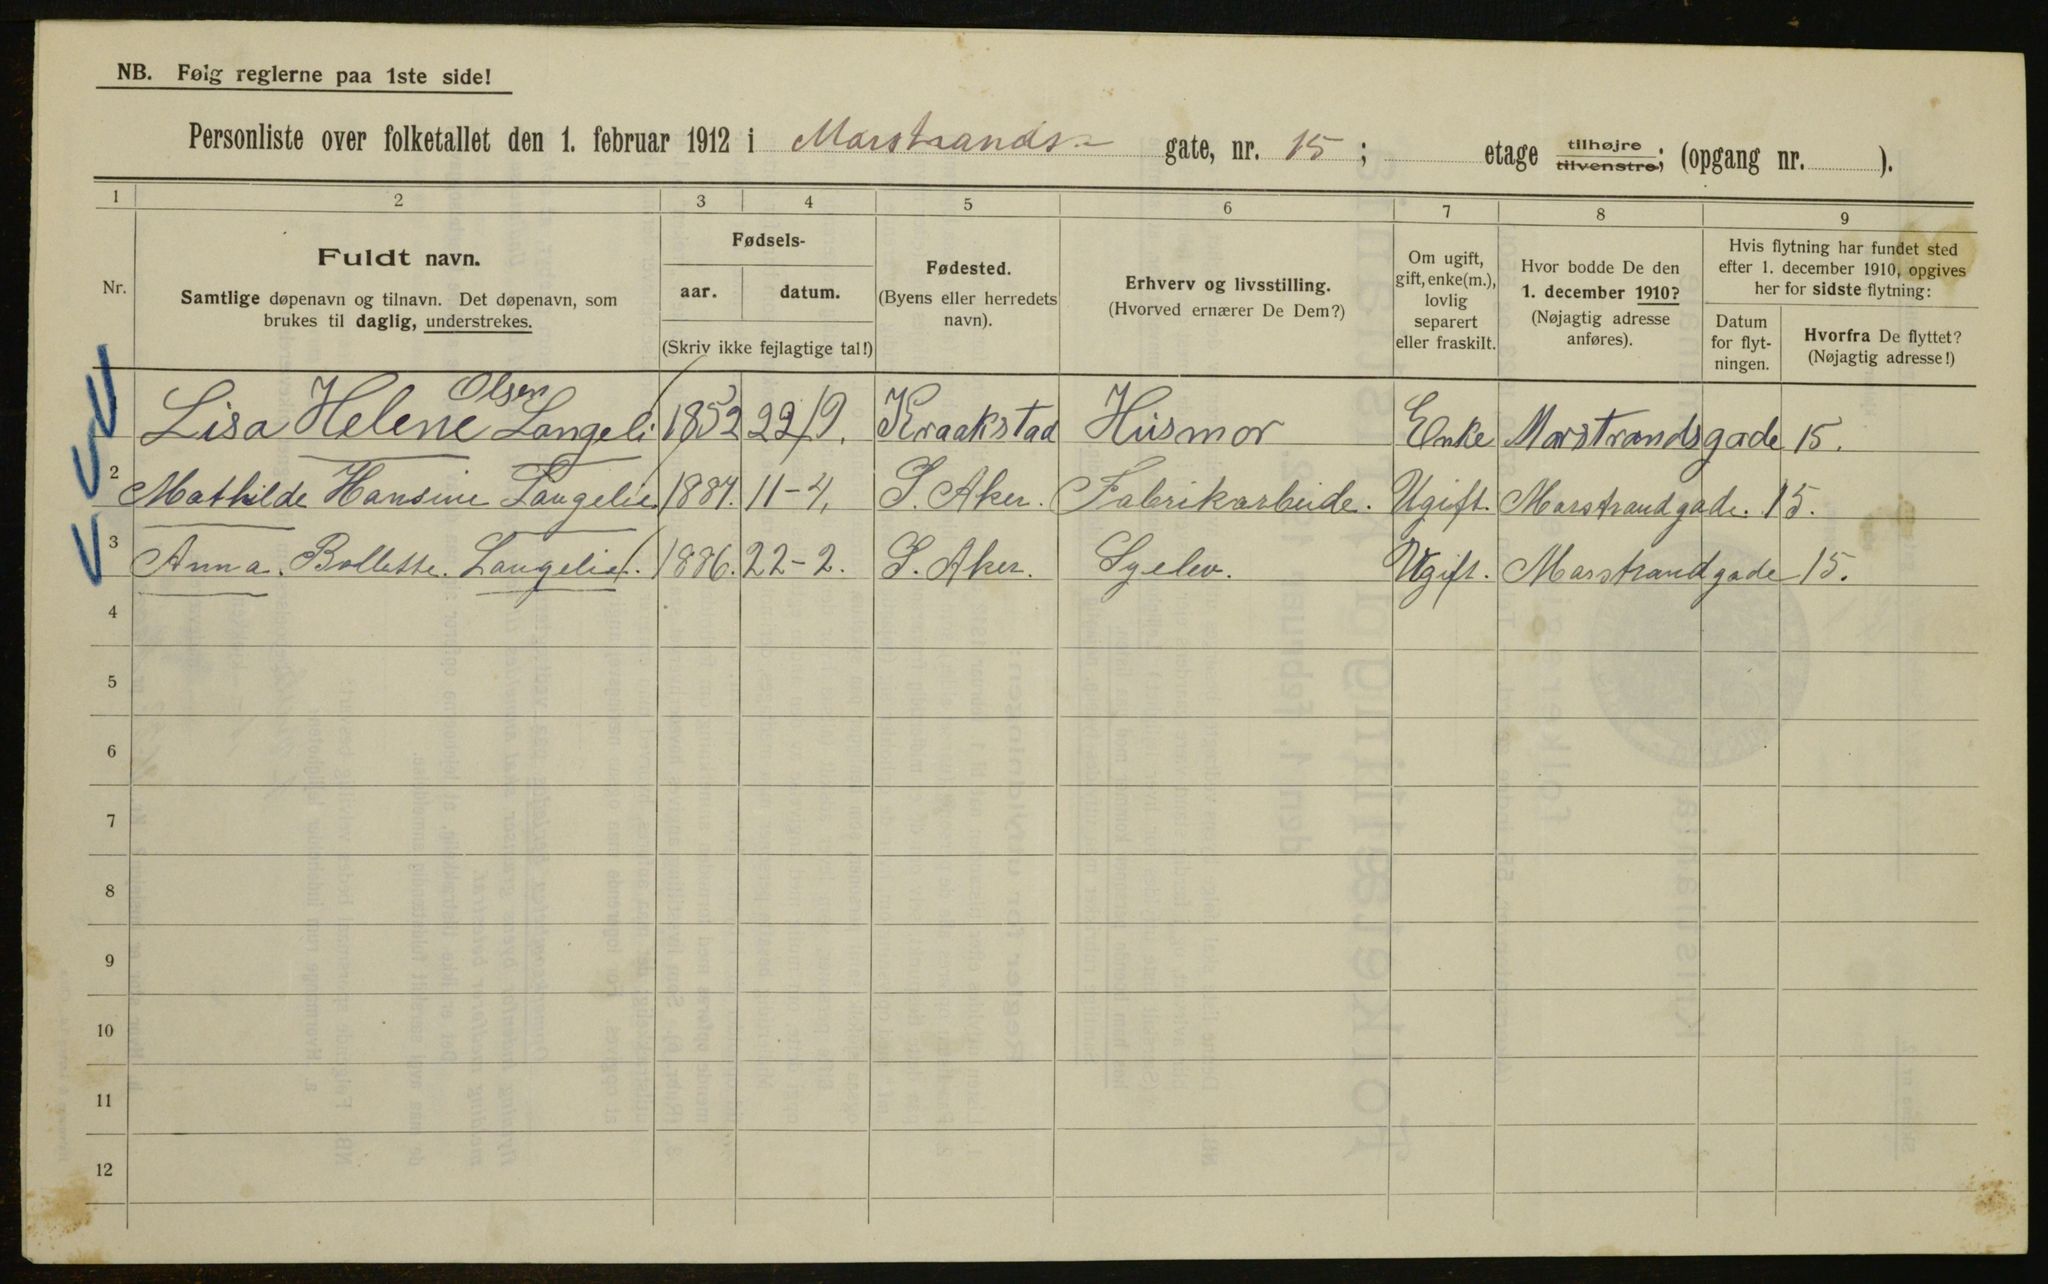 NB. Følg reglerne paa 1ste side!
Personliste over folketallet den 1. februar 1912 i Marstrands- gate, nr. 15; etage tilhøjre tilvenstre; (opgang nr. ).
1 2 3 4 5 6 7 8 9
Nr.
Fuldt navn.
Samtlige døpenavn og tilnavn. Det døpenavn, som
brukes til daglig, understrekes.
Fødsels-
aar. datum.
(Skriv ikke fejlagtige tal!)
Fødested.
(Byens eller herredets
navn).
Erhverv og livsstilling.
(Hvorved ernærer De Dem?)
Om ugift,
gift, enke(m.),
lovlig
separert
eller fraskilt.
Hvor bodde De den
1. december 1910?
(Nøjagtig adresse
anføres).
Hvis flytning har fundet sted
efter 1. december 1910, opgives
her for sidste flytning:
Datum
for flyt-
ningen.
Hvorfra De flyttet?
(Nøjagtig adresse!)
Olsen
Lisa Helene Langeli 1852 22/9. Kraakstad Husmor Enke Marstrandsgade 15.
2 Mathilde Hansine Langelie. 1884. 11-4. S. Aker. Fabrikarbeide. Ugift. Marstrandgade. 15.
3 Anna. Bollette. Langelie. 1886. 22-2. S. Aker. Syelev. Ugift. Marstrandgade 15.
4
5
6
7
8
9
10
11
12